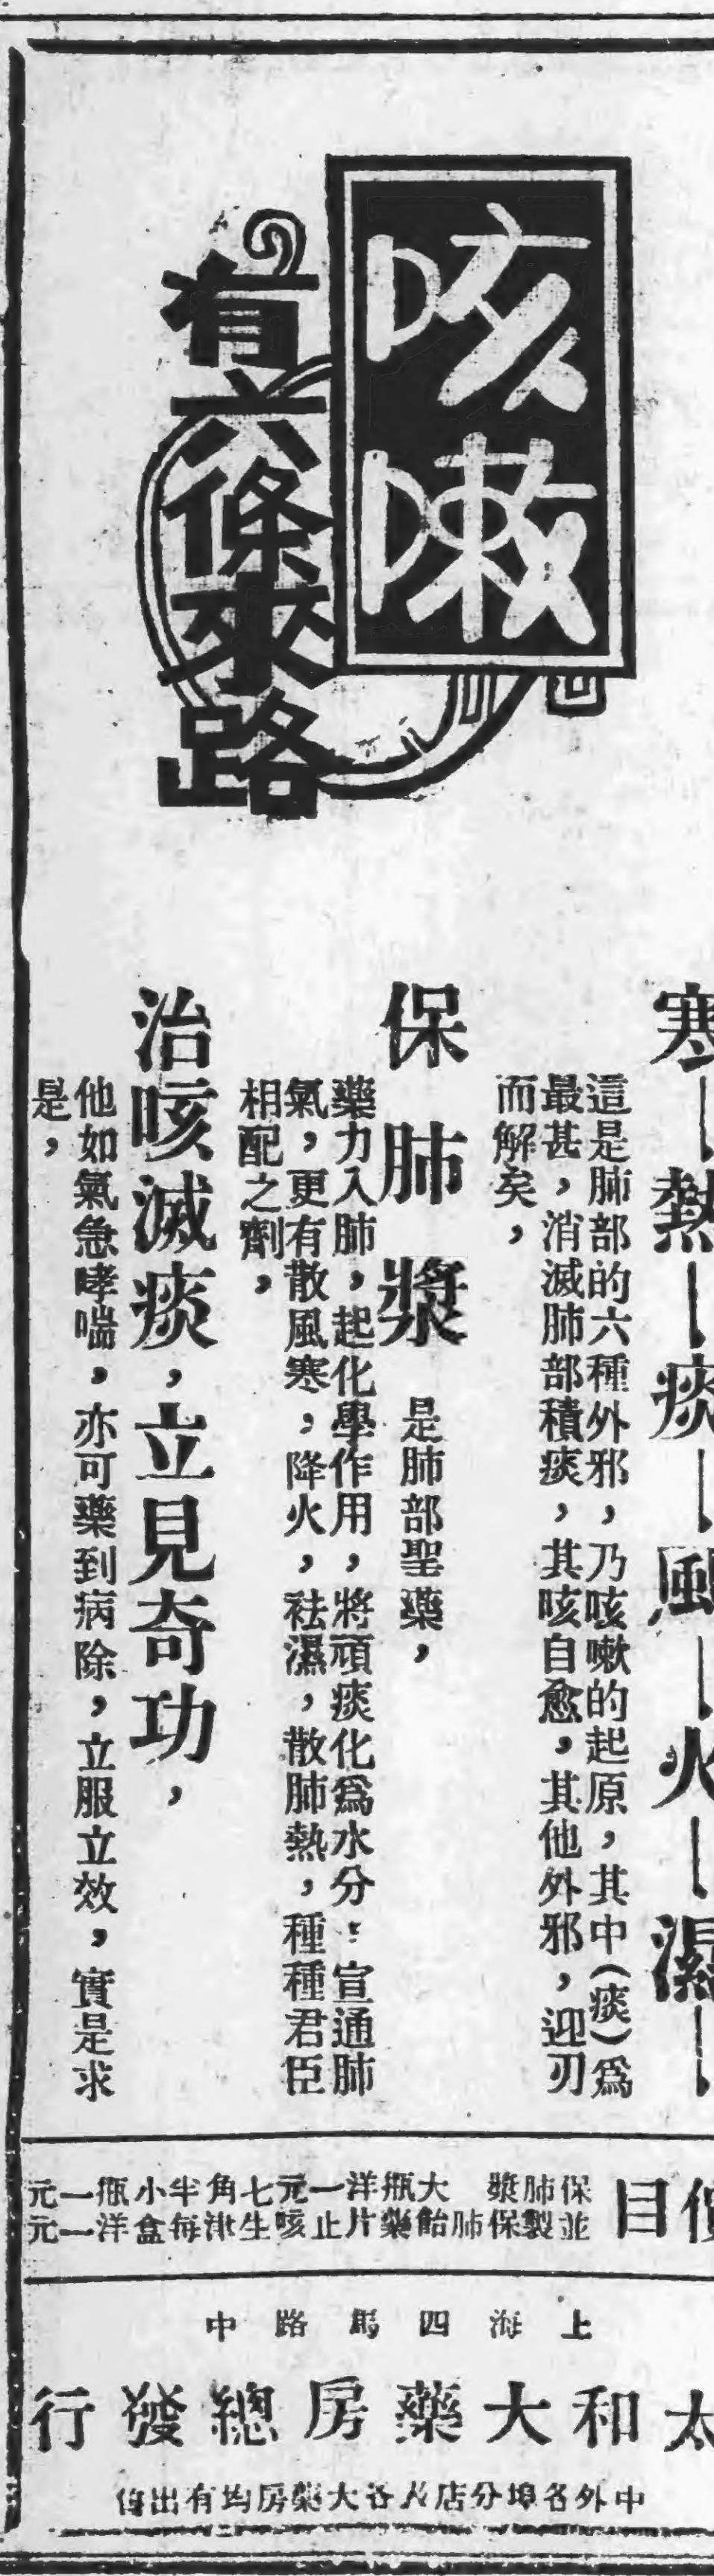 咳嗽
有六條來路
寒—熱—痰—風—火—濕—
這是肺部的六種外邪，乃咳嗽的起原，其中（痰）爲
最甚，消滅肺部積痰，其咳自愈，其他外邪，迎刃
而解矣，
保肺漿 是肺部聖藥，
藥力入肺，起化學作用，將頑痰化爲水分，宣通肺
氣，更有散風寒，降火，祛濕，散肺熱，種種君臣
相配之劑，
治咳滅痰，立見奇功，
他如氣急哮喘，亦可藥到病除，立服立效，實是求
是，
價目
保肺漿 大瓶洋一元七角半小瓶一元
並製保肺飴藥片止咳生津每盒洋一元
上海四馬路中
太和大藥房總發行
中外各埠分店及各大藥房均有出售